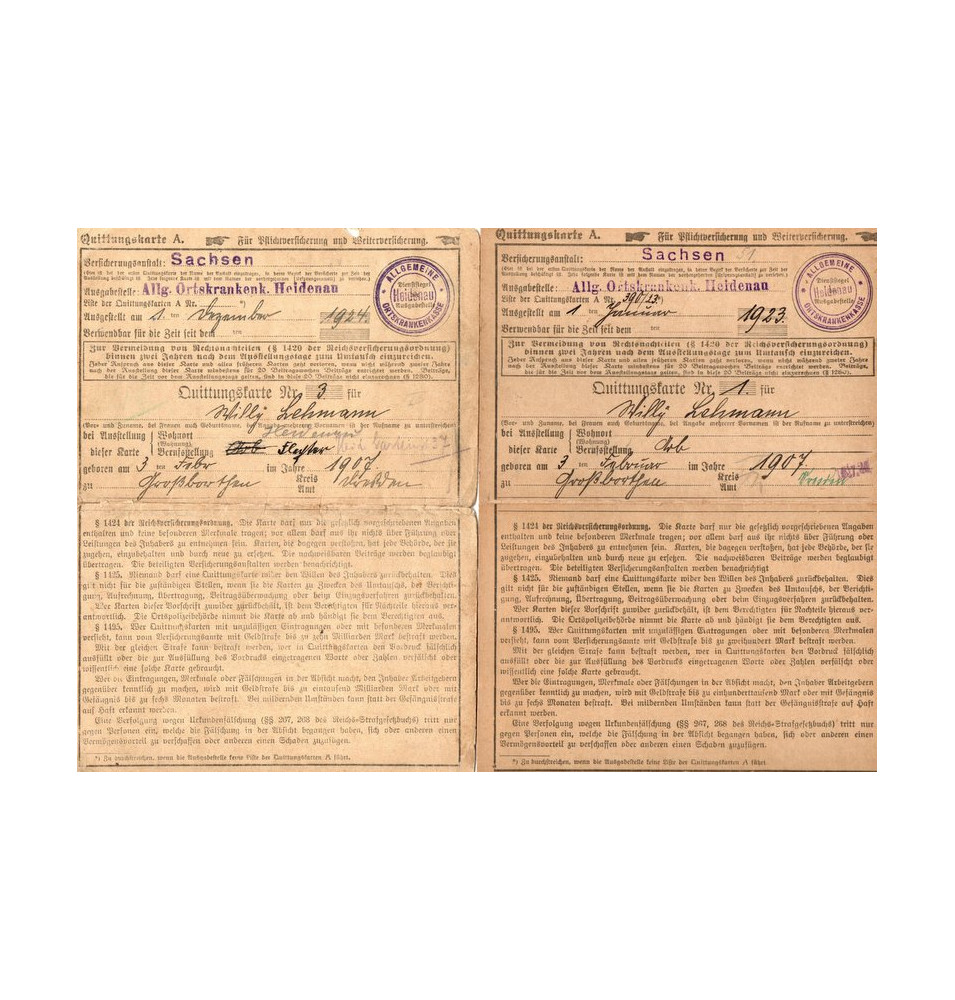 Quittungskarte A. Für Pflichtversicherung und Weiterversicherung.
Versicherungsanstalt: Sachsen
Ausgabestelle: Allg. Ortskrankenk. Heidenau
Liste der Quittungskarten A Nr. *)
Ausgestellt am 1 ten Dezember 1924.
Verwendbar für die Zeit seit dem ten
ALLGEMEINE ORTSKRANKENKASSE
Dienstsiegel
Heidenau
Ausgabestelle
Zur Vermeidung von Rechtsnachteilen (§ 1420 der Reichsversicherungsordnung)
binnen zwei Jahren nach dem Ausstellungstage zum Umtausch einzureichen.
Quittungskarte Nr. 3 für
Willy Lehmann
(Vor- und Zuname, bei Frauen auch Geburtsname, bei Angabe mehrerer Vornamen ist der Rufname zu unterstreichen)
bei Ausstellung Wohnort
(Wohnung)
dieser Karte Berufsstellung
geboren am 3 ten Febr im Jahre 1907.
zu Großborthen Kreis Amt Dresden
§ 1424 der Reichsversicherungsordnung. Die Karte darf nur die gesetzlich vorgeschriebenen Angaben
enthalten und keine besonderen Merkmale tragen; vor allem darf aus ihr nichts über Führung oder
Leistungen des Inhabers zu entnehmen sein. Karten, die dagegen verstoßen, hat jede Behörde, der sie
zugehen, einzubehalten und durch neue zu ersetzen. Die nachweisbaren Beiträge werden beglaubigt
übertragen. Die beteiligten Versicherungsanstalten werden benachrichtigt.
§ 1425. Niemand darf eine Quittungskarte wider den Willen des Inhabers zurückbehalten. Dies
gilt nicht für die zuständigen Stellen, wenn sie die Karten zu Zwecken des Umtauschs, der Berichti-
gung, Aufrechnung, Übertragung, Beitragsüberwachung oder beim Einzugsverfahren zurückbehalten.
Wer Karten dieser Vorschrift zuwider zurückbehält, ist dem Berechtigten für Nachteile hieraus ver-
antwortlich. Die Ortspolizeibehörde nimmt die Karte ab und händigt sie dem Berechtigten aus.
§ 1495. Wer Quittungskarten mit unzulässigen Eintragungen oder mit besonderen Merkmalen
versieht, kann vom Versicherungsamte mit Geldstrafe bis zu zehn Milliarden Mark bestraft werden.
Mit der gleichen Strafe kann bestraft werden, wer in Quittungskarten den Vordruck fälschlich
ausfüllt oder die zur Ausfüllung des Vordrucks eingetragenen Worte oder Zahlen verfälscht oder
wissentlich eine solche Karte gebraucht.
Wer die Eintragungen, Merkmale oder Fälschungen in der Absicht macht, den Inhaber Arbeitgebern
gegenüber kenntlich zu machen, wird mit Geldstrafe bis zu eintausend Milliarden Mark oder mit
Gefängnis bis zu sechs Monaten bestraft. Bei mildernden Umständen kann statt der Gefängnisstrafe auf
auf Haft erkannt werden.
Eine Verfolgung wegen Urkundenfälschung (§§ 267, 268 des Reichs-Strafgesetzbuchs) tritt nur
gegen Personen ein, welche die Fälschung in der Absicht begangen haben, sich oder anderen einen
Vermögensvorteil zu verschaffen oder anderen einen Schaden zuzufügen.
*) Zu durchstreichen, wenn die Ausgabestelle keine Liste der Quittungskarten A führt.
Quittungskarte A. Für Pflichtversicherung und Weiterversicherung.
Versicherungsanstalt: Sachsen
Ausgabestelle: Allg. Ortskrankenk. Heidenau
Liste der Quittungskarten A Nr. 390/23 *)
Ausgestellt am 1 ten Januar 1923.
Verwendbar für die Zeit seit dem ten
ALLGEMEINE ORTSKRANKENKASSE
Dienstsiegel
Heidenau
Ausgabestelle
Zur Vermeidung von Rechtsnachteilen (§ 1420 der Reichsversicherungsordnung)
binnen zwei Jahren nach dem Ausstellungstage zum Umtausch einzureichen.
Quittungskarte Nr. 1. für
Willy Lehmann
(Vor- und Zuname, bei Frauen auch Geburtsname, bei Angabe mehrerer Vornamen ist der Rufname zu unterstreichen)
bei Ausstellung Wohnort
(Wohnung)
dieser Karte Berufsstellung Arb
geboren am 3 ten Februar im Jahre 1907.
zu Großborthen Kreis Amt Dresden
§ 1424 der Reichsversicherungsordnung. Die Karte darf nur die gesetzlich vorgeschriebenen Angaben
enthalten und keine besonderen Merkmale tragen; vor allem darf aus ihr nichts über Führung oder
Leistungen des Inhabers zu entnehmen sein. Karten, die dagegen verstoßen, hat jede Behörde, der sie
zugehen, einzubehalten und durch neue zu ersetzen. Die nachweisbaren Beiträge werden beglaubigt
übertragen. Die beteiligten Versicherungsanstalten werden benachrichtigt
§ 1425. Niemand darf eine Quittungskarte wider den Willen des Inhabers zurückbehalten. Dies
gilt nicht für die zuständigen Stellen, wenn sie die Karten zu Zwecken des Umtauschs, der Berichti-
gung, Aufrechnung, Übertragung, Beitragsüberwachung oder beim Einzugsverfahren zurückbehalten.
Wer Karten dieser Vorschrift zuwider zurückbehält, ist dem Berechtigten für Nachteile hieraus ver-
antwortlich. Die Ortspolizeibehörde nimmt die Karte ab und händigt sie dem Berechtigten aus.
§ 1495. Wer Quittungskarten mit unzulässigen Eintragungen oder mit besonderen Merkmalen
versieht, kann vom Versicherungsamte mit Geldstrafe bis zu zweihundert Mark bestraft werden.
Mit der gleichen Strafe kann bestraft werden, wer in Quittungskarten den Vordruck fälschlich
ausfüllt oder die zur Ausfüllung des Vordrucks eingetragenen Worte oder Zahlen verfälscht oder
wissentlich eine solche Karte gebraucht.
Wer die Eintragungen, Merkmale oder Fälschungen in der Absicht macht, den Inhaber Arbeitgebern
gegenüber kenntlich zu machen, wird mit Geldstrafe bis zu einhunderttausend Mark oder mit Gefängnis
bis zu sechs Monaten bestraft. Bei mildernden Umständen kann statt der Gefängnisstrafe auf Haft
erkannt werden.
Eine Verfolgung wegen Urkundenfälschung (§§ 267, 268 des Reichs-Strafgesetzbuchs) tritt nur
gegen Personen ein, welche die Fälschung in der Absicht begangen haben, sich oder anderen einen
Vermögensvorteil zu verschaffen oder anderen einen Schaden zuzufügen.
*) Zu durchstreichen, wenn die Ausgabestelle keine Liste der Quittungskarten A führt